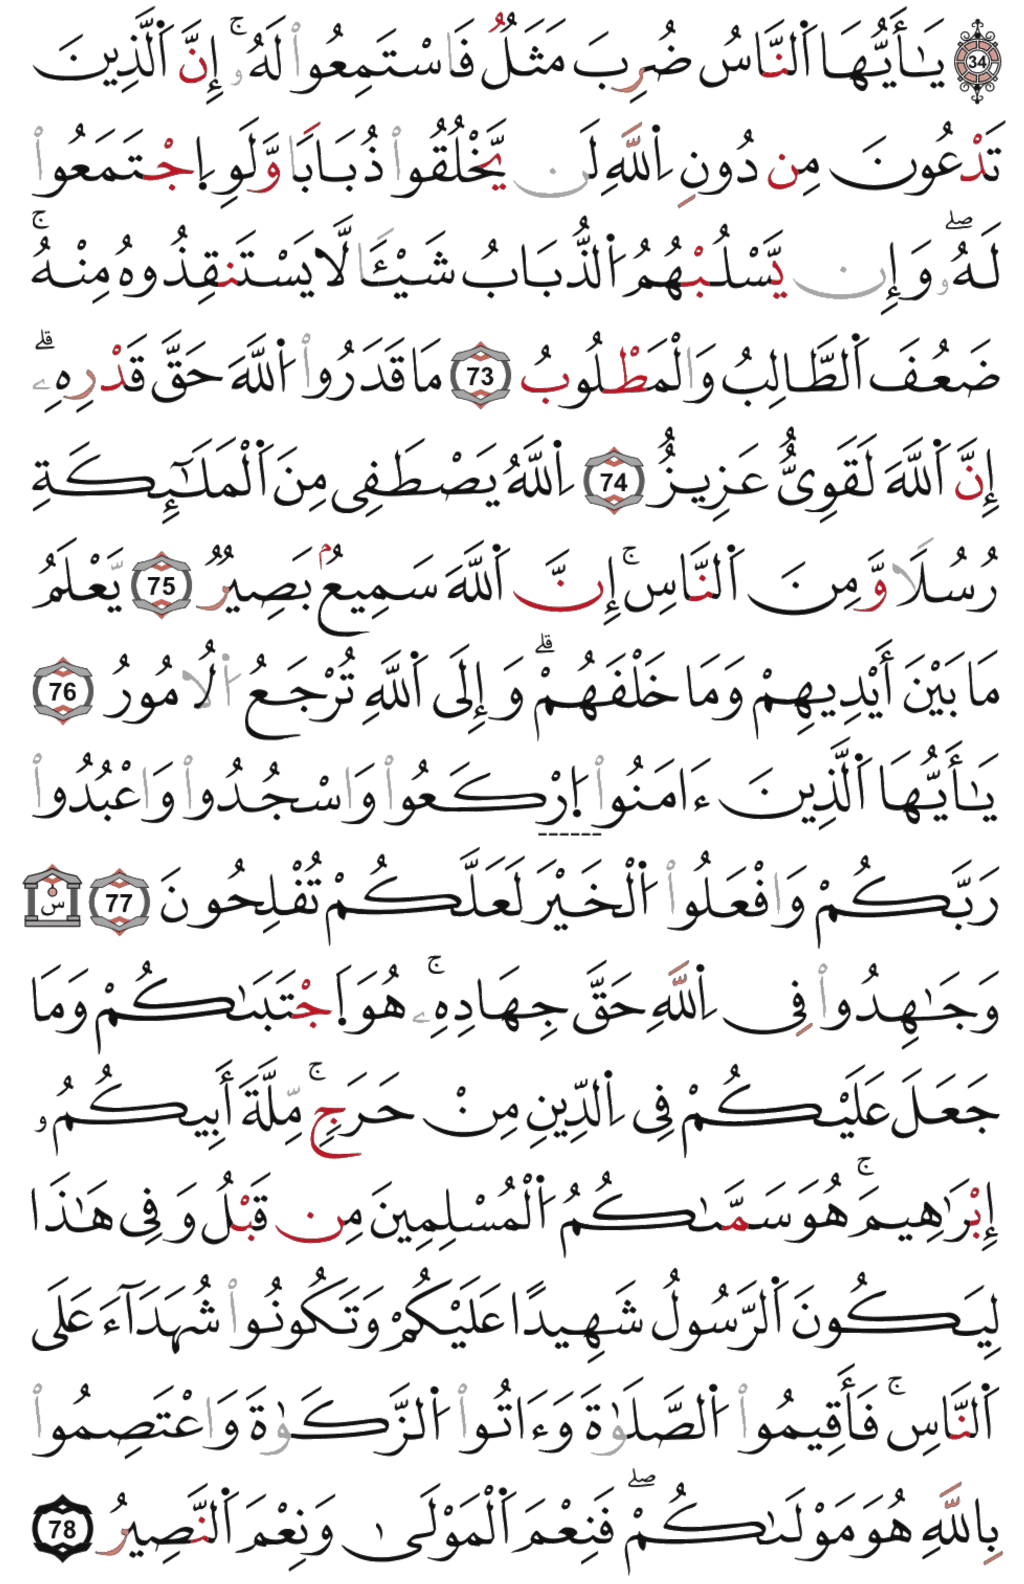 34 يَـٰٓأَيُّهَا اَ۬لنَّاسُ ضُرِبَ مَثَلٌ فَاسْتَمِعُواْ لَهُۥٓۚ إِنَّ اَ۬لَّذِينَ
تَدْعُونَ مِن دُونِ اِ۬للَّهِ لَن يَّخْلُقُواْ ذُبَابًا وَّلَوِ اِ۪جْتَمَعُواْ
لَهُۥۖ وَإِن يَّسْلُبْهُمُ اُ۬لذُّبَابُ شَيْـًٔا لَّا يَسْتَنقِذُوهُ مِنْهُۚ
ضَعُفَ اَ۬لطَّالِبُ وَالْمَطْلُوبُ 73 مَا قَدَرُواْ اُ۬للَّهَ حَقَّ قَدْرِهِۦٓۗ
إِنَّ اَ۬للَّهَ لَقَوِيٌّ عَزِيزٌ 74 اِ۬للَّهُ يَصْطَفِى مِنَ اَ۬لْمَلَـٰٓئِكَةِ
رُسُلًا وَّمِنَ اَ۬لنَّاسِۚ إِنَّ اَ۬للَّهَ سَمِيعٌۢ بَصِيرٌ 75 يَّعْلَمُ
مَا بَيْنَ أَيْدِيهِمْ وَمَا خَلْفَهُمْۗ وَإِلَى اَ۬للَّهِ تُرْجَعُ اُ۬لُامُورُ 76
يَـٰٓأَيُّهَا اَ۬لَّذِينَ ءَامَنُواْ اُ۪رْكَعُواْ وَاسْجُدُواْ وَاعْبُدُواْ
رَبَّكُمْ وَافْعَلُواْ اُ۬لْخَيْرَ لَعَلَّكُمْ تُفْلِحُونَ 77 س
وَجَـٰهِدُواْ فِى اِ۬للَّهِ حَقَّ جِهَادِهِۦۚ هُوَ اَ۪جْتَبَىٰكُمْ وَمَا
جَعَلَ عَلَيْكُمْ فِى اِ۬لدِّينِ مِنْ حَرَجٍۚ مِّلَّةَ أَبِيكُمُۥ
إِبْرَٰهِيمَۚ هُوَ سَمَّىٰكُمُ اُ۬لْمُسْلِمِينَ مِن قَبْلُ وَفِى هَـٰذَا
لِيَكُونَ اَ۬لرَّسُولُ شَهِيدًا عَلَيْكُمْ وَتَكُونُواْ شُهَدَآءَ عَلَى
اَ۬لنَّاسِۚ فَأَقِيمُواْ اُ۬لصَّلَوٰةَ وَءَاتُواْ اُ۬لزَّكَوٰةَ وَاعْتَصِمُواْ
بِاللَّهِ هُوَ مَوْلَىٰكُمْۖ فَنِعْمَ اَ۬لْمَوْلَىٰ وَنِعْمَ اَ۬لنَّصِيرُ 78